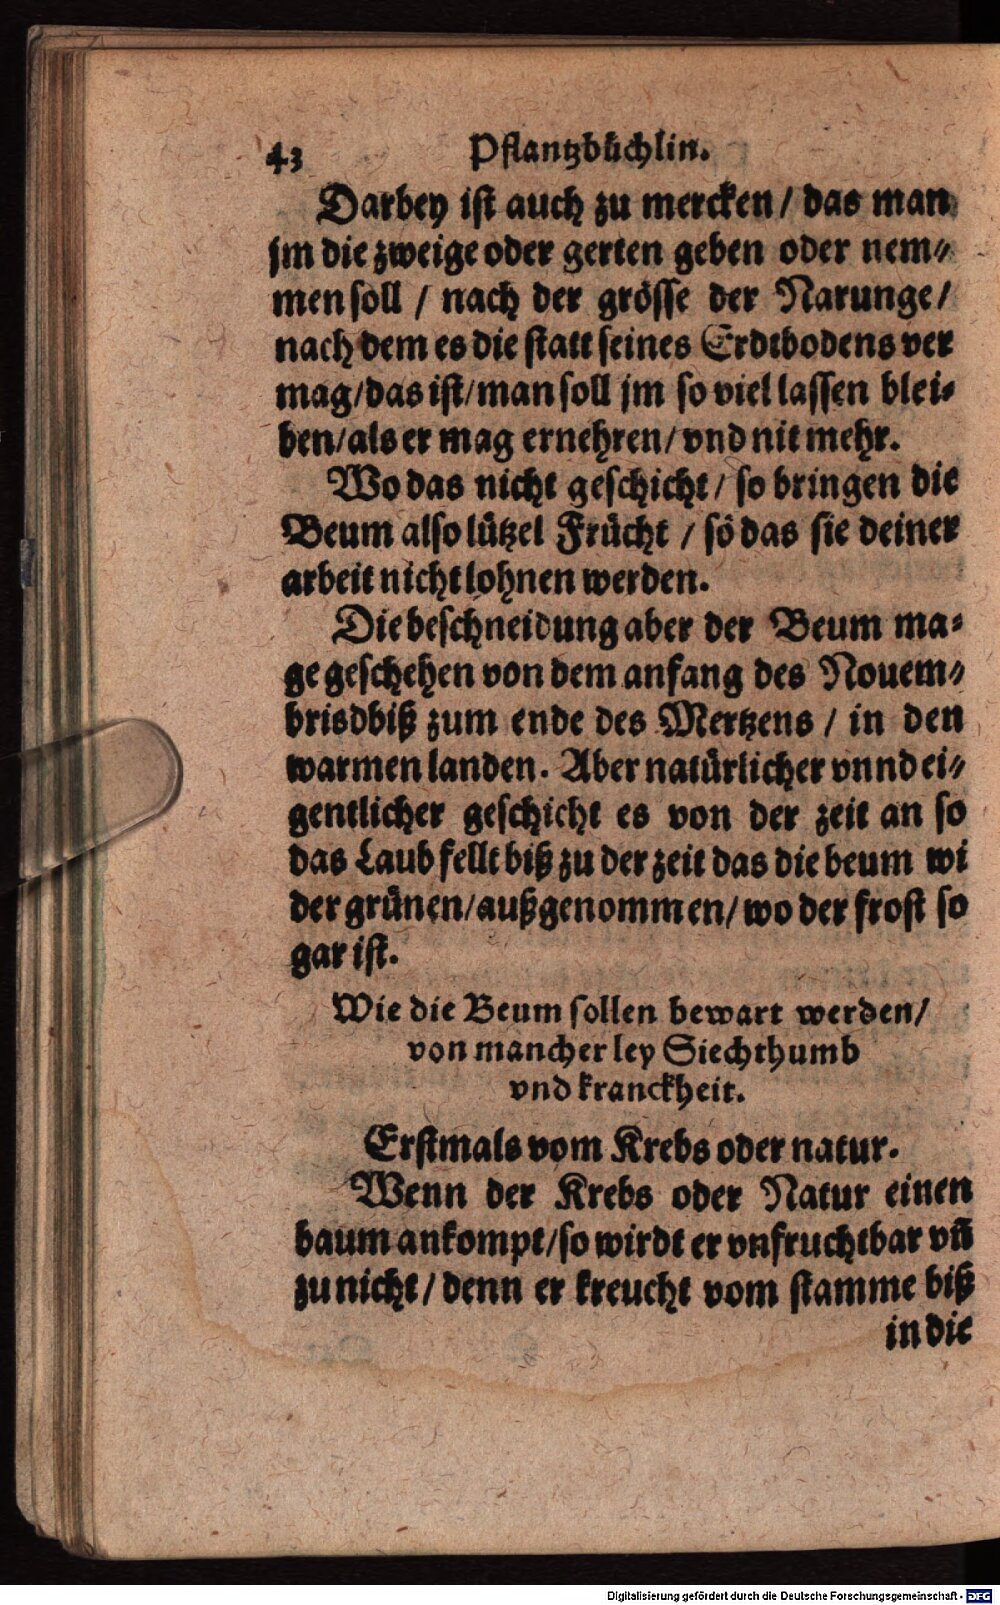 43 Pflantzbůchlin.
Darbey ist auch zu mercken / das man
jm die zweige oder gerten geben oder nem⸗
men soll / nach der grösse der Narunge /
nach dem es die statt seines Erdtbodens ver
mag / das ist / man soll jm so viel lassen blei⸗
ben / als er mag ernehren / vnd nit mehr.
Wo das nicht geschicht / so bringen die
Beum also lützel Frücht / sö das sie deiner
arbeit nicht lohnen werden.
Die beschneidung aber der Beum ma⸗
ge geschehen von dem anfang des Nouem⸗
brisdbiß zum ende des Mertzens / in den
warmen landen. Aber natürlicher vnnd ei⸗
gentlicher geschicht es von der zeit an so
das Laub fellt biß zu der zeit das die beum wi
der grünen / außgenommen / wo der frost so
gar ist.
Wie die Beum sollen bewart werden /
von mancherley Siechthumb
vnd kranckheit.
Erstmals vom Krebs oder natur.
Wenn der Krebs oder Natur einen
baum ankompt / so wirdt er vnfruchtbar vñ
zu nicht / denn er kreucht vom stamme biß
in die
Digitalisierung gefördert durch die Deutsche Forschungsgemeinschaft - DFG